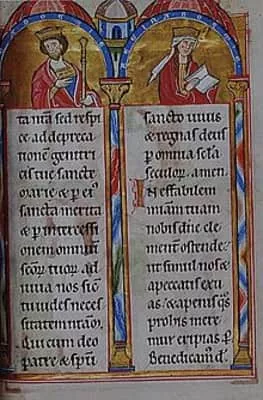 ta n̄ra sed respi
ce ad depreca
tionē genitri
cis tue sancte
marie & p ei'
sancta merita
& p intercessi
onem omniū
scōr tuor ad
iuua nos si
tuu des neces
sitatem n̄ram
Qui cum deo
patre & spū
sancto uiuis
& regnas deus
p omnia sc̄la
seculor. amen.
Ineffabilem
miām tuam
nobis dn̄e cle
menter ostende
ut simul nos &
a peccatis exu
as & a penis q̄s
p his mere
mur eripias p
Benedicam' d.